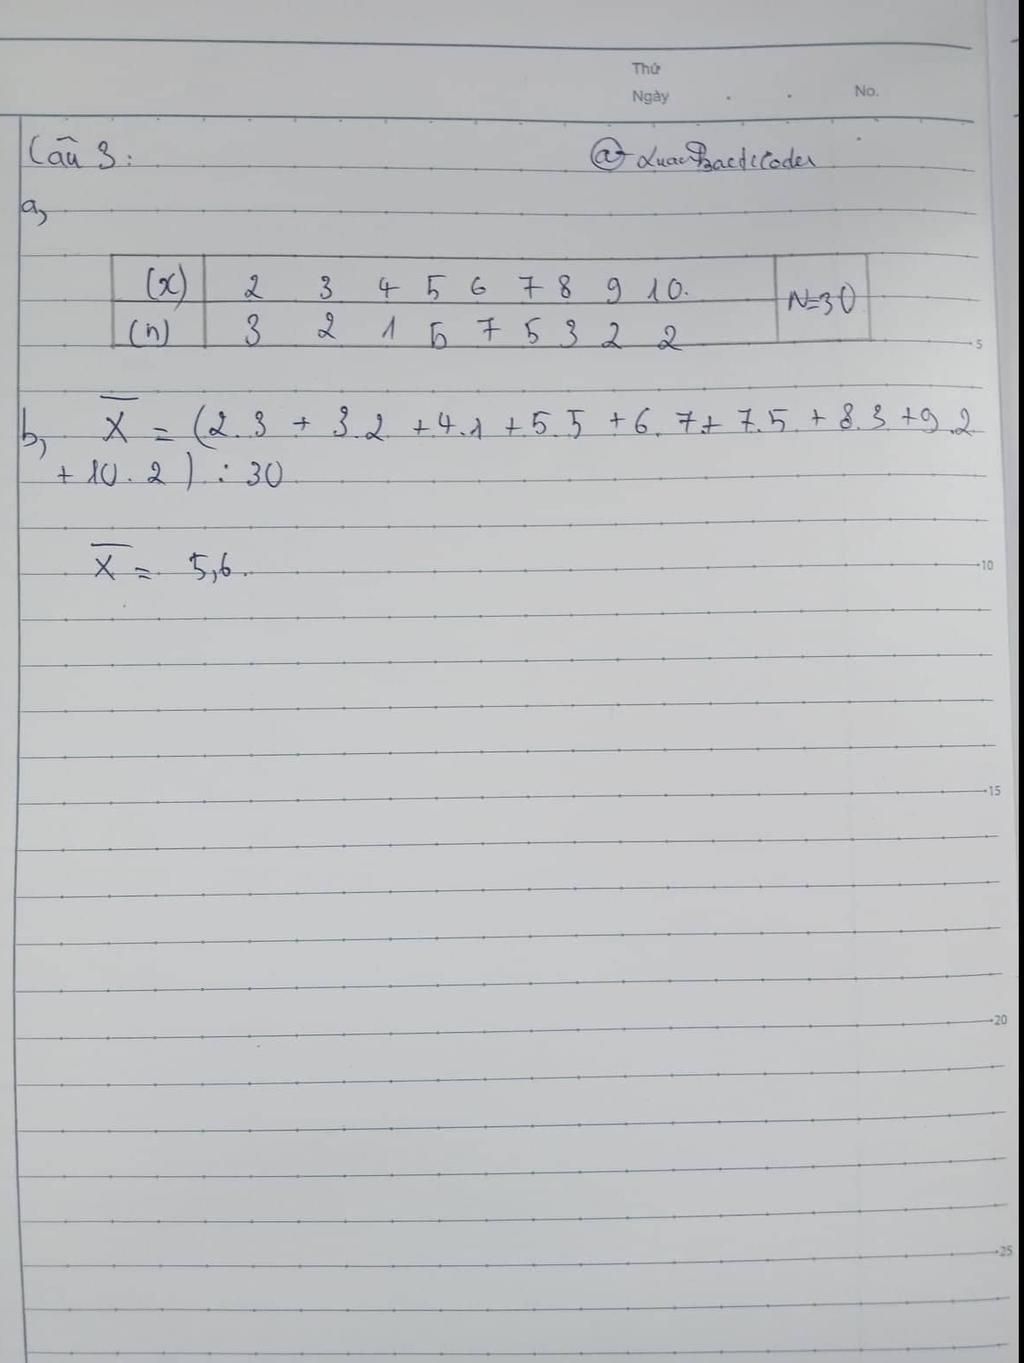 Thứ
Ngày . . No.
Câu 3:
a,
(x) 2 3 4 5 6 7 8 9 10. N=30
(n) 3 2 1 5 7 5 3 2 2
5
b, X̅ = (2.3 + 3.2 + 4.1 + 5.5 + 6.7 + 7.5 + 8.3 + 9.2
+ 10.2) : 30
X̅ = 5,6.
10
15
20
25